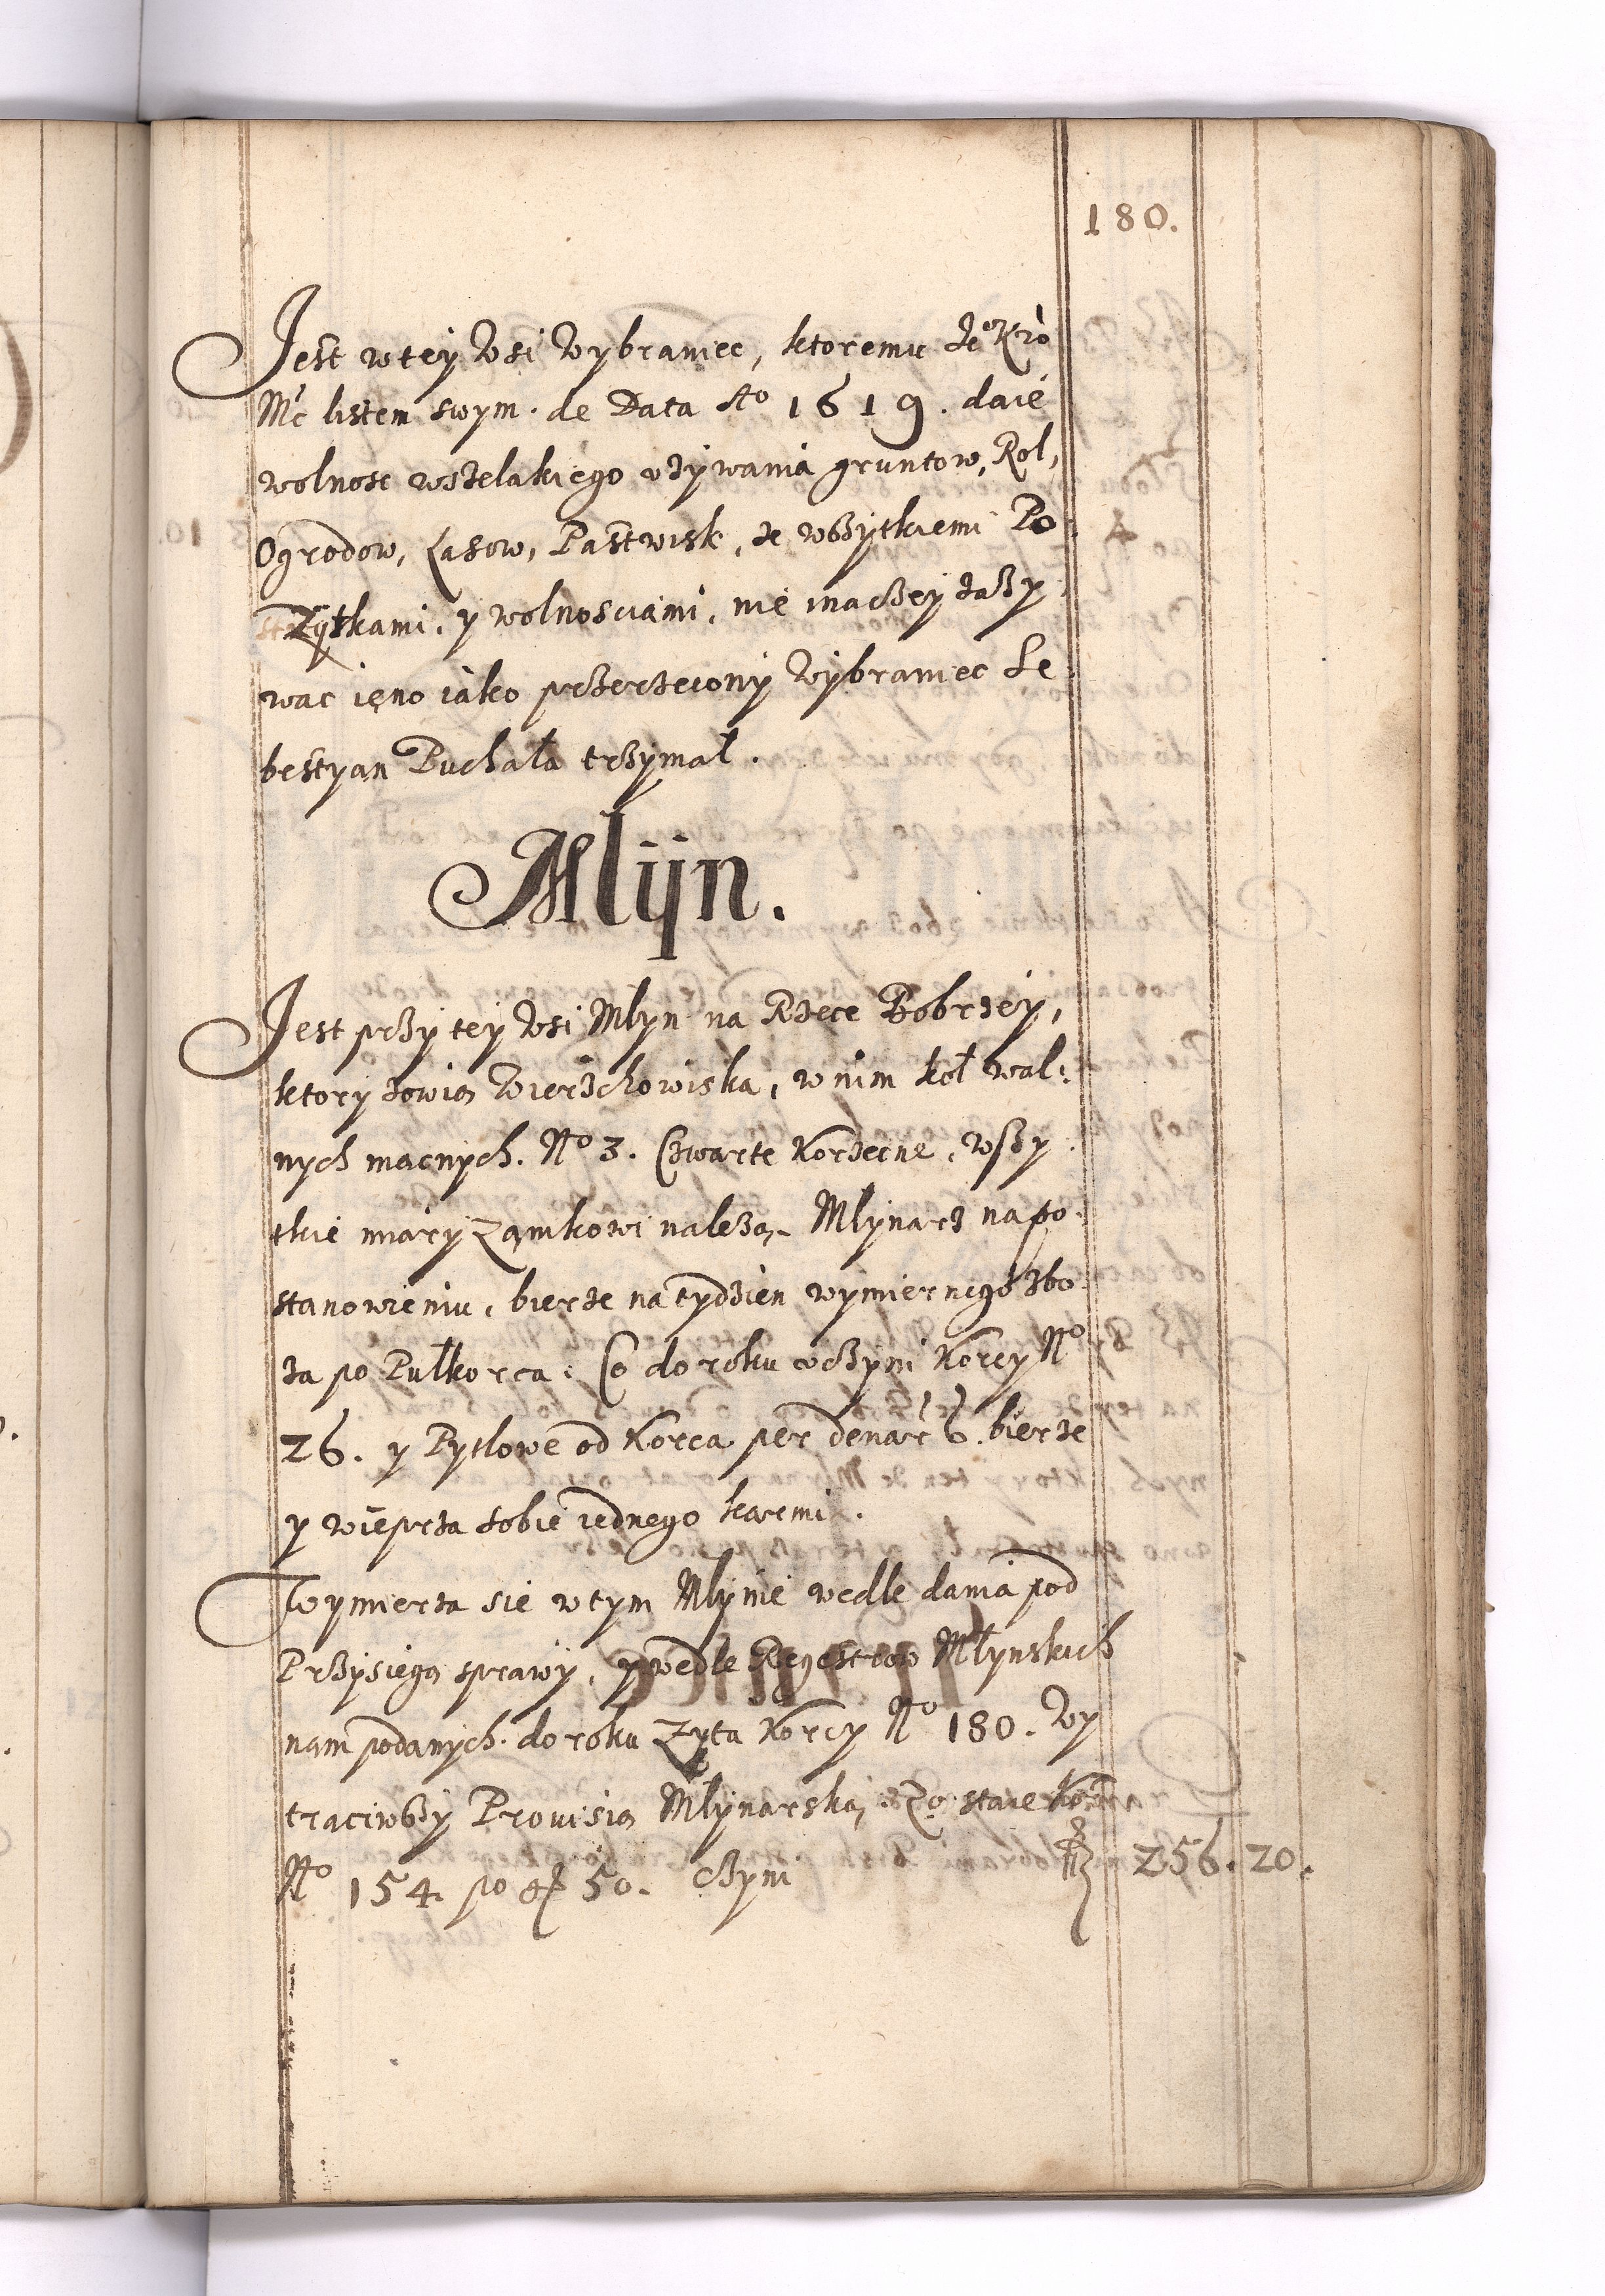 180.
Jest w tey Wsi Wybraniec, ktoremu Je° Kro
Mć listem swym. de Data A° 1619. daie
wolnosc wszelakiego vzywania gruntow, Rol,
Ogrodow, Lasow, Pastwisk, ze wßytkiemi Po
Zytkami, y wolnosciami, nie inaczey zaßy
wac ieno iako przerzeczony Wybraniec Se
bestyan Puchała trzymał.
Mlÿn.
Jest przy tey Wsi Mlyn na Rzece Bobrzey,
ktory zowią Wierzchowiska, w nim koł wal:
nych macnych. N° 3. Czwarte Korzecne, wszy
tkie miary Zamkowi naleza, Mlynarz na po
stanowieniu, bierze na tydzien wymiernego zbo
za po Pułkorca: Co do roku vczyni Korcy N°
26. y Pytlowe od Korca per denar 6. bierze
y wieprza sobie iednego karmi.
Wymierza sie w tym Mlynie wedle dania pod
Przysięgą sprawy, y wedle Regestrow Młynskich
nam podanych. do roku Zyta Korcy N° 180. Wy
traciwßy Prouisią Mlynarską, Zostaie Kor
N° 154. po g 50. czyni f 256. 20.